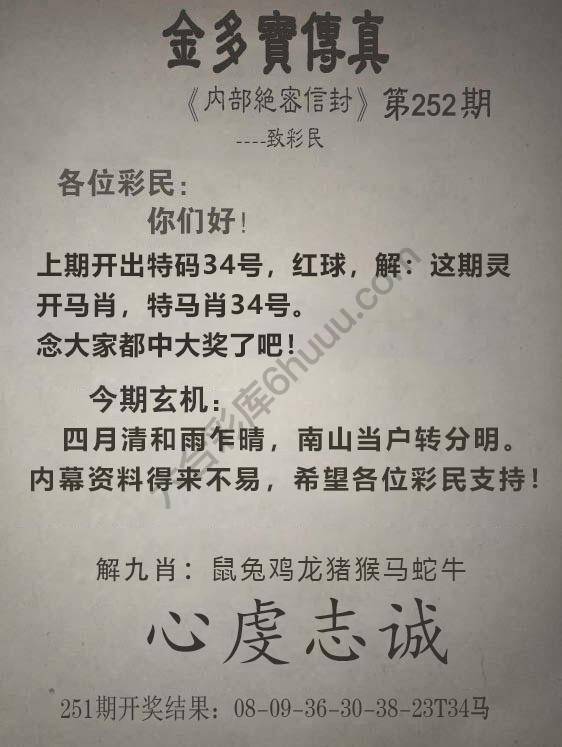 金多寶傳真
《内部絶密信封》第252期
----致彩民
各位彩民:
你们好!
上期开出特码34号，红球，解：这期灵
开马肖，特马肖34号。
念大家都中大奖了吧!
今期玄机：
四月清和雨乍晴，南山当户转分明。
内幕资料得来不易，希望各位彩民支持!
六合彩库6huuu.com
解九肖：鼠兔鸡龙猪猴马蛇牛
心虔志诚
251期开奖结果：08-09-36-30-38-23T34马